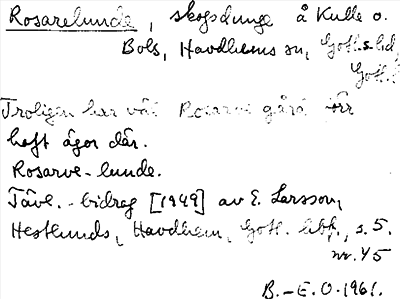 Rosarelunde, skogsdunge å Kulle o.
Bols, Havdhems sn, Gotl. s. hd,
Gotl.
Troligen har väl Rosarve gård förr
haft ägor där.
Rosarve-lunde.
Tävl.-bidrag [1949] av E. Larsson,
Hestlunds, Havdhem, Gotl. bibl., s. 5.
nr. 45
B.-E. O. 1961.